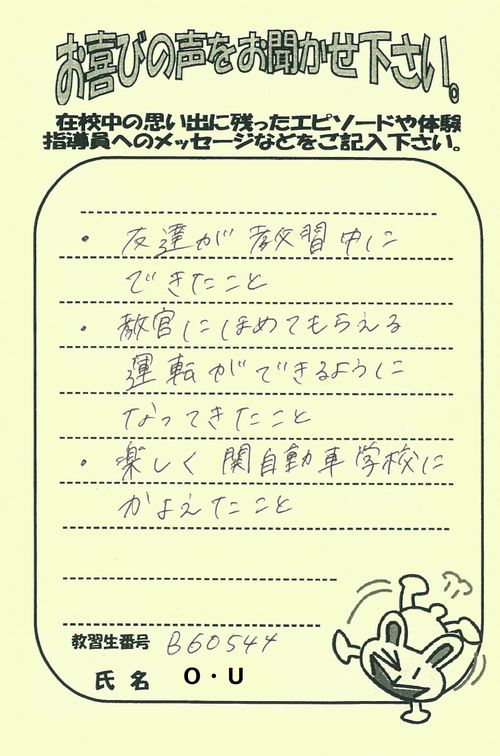 お喜びの声をお聞かせ下さい。
在校中の思い出に残ったエピソードや体験
指導員へのメッセージなどをご記入下さい。
・ 友達が教習中に
できたこと
・ 教官にほめてもらえる
運転ができるように
なってきたこと
・ 楽しく関自動車学校に
かよえたこと
教習生番号 B60544
氏名 O・U